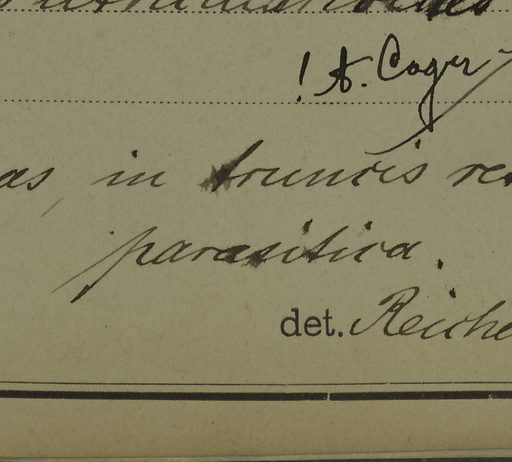 ! A. Cager
as, in truncis re
parasitica.
det. Reiche